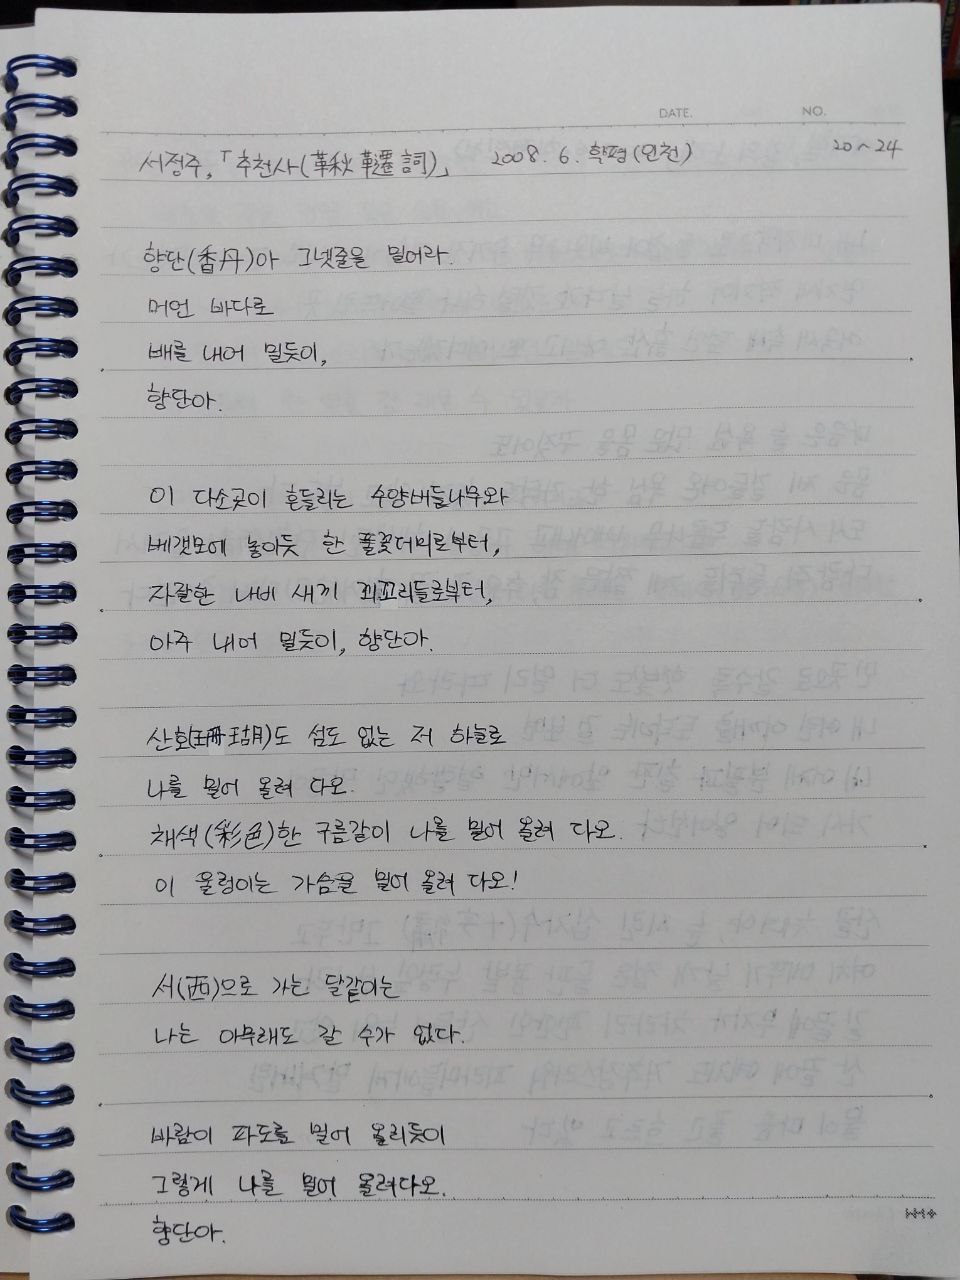 DATE. NO.
서정주, 「추천사(鞦韆詞)」 2008. 6. 학평(인천) 20~24
향단(香丹)아 그넷줄을 밀어라.
머언 바다로
배를 내어 밀듯이,
향단아.
이 다소곳이 흔들리는 수양버들나무와
베갯모에 놓이듯 한 풀꽃더미로부터,
자잘한 나비 새끼 꾀꼬리들로부터,
아주 내어 밀듯이, 향단아.
산호(珊瑚)도 섬도 없는 저 하늘로
나를 밀어 올려 다오.
채색(彩色)한 구름같이 나를 밀어 올려 다오.
이 울렁이는 가슴을 밀어 올려 다오!
서(西)으로 가는 달같이는
나는 아무래도 갈 수가 없다.
바람이 파도를 밀어 올리듯이
그렇게 나를 밀어 올려다오.
향단아.